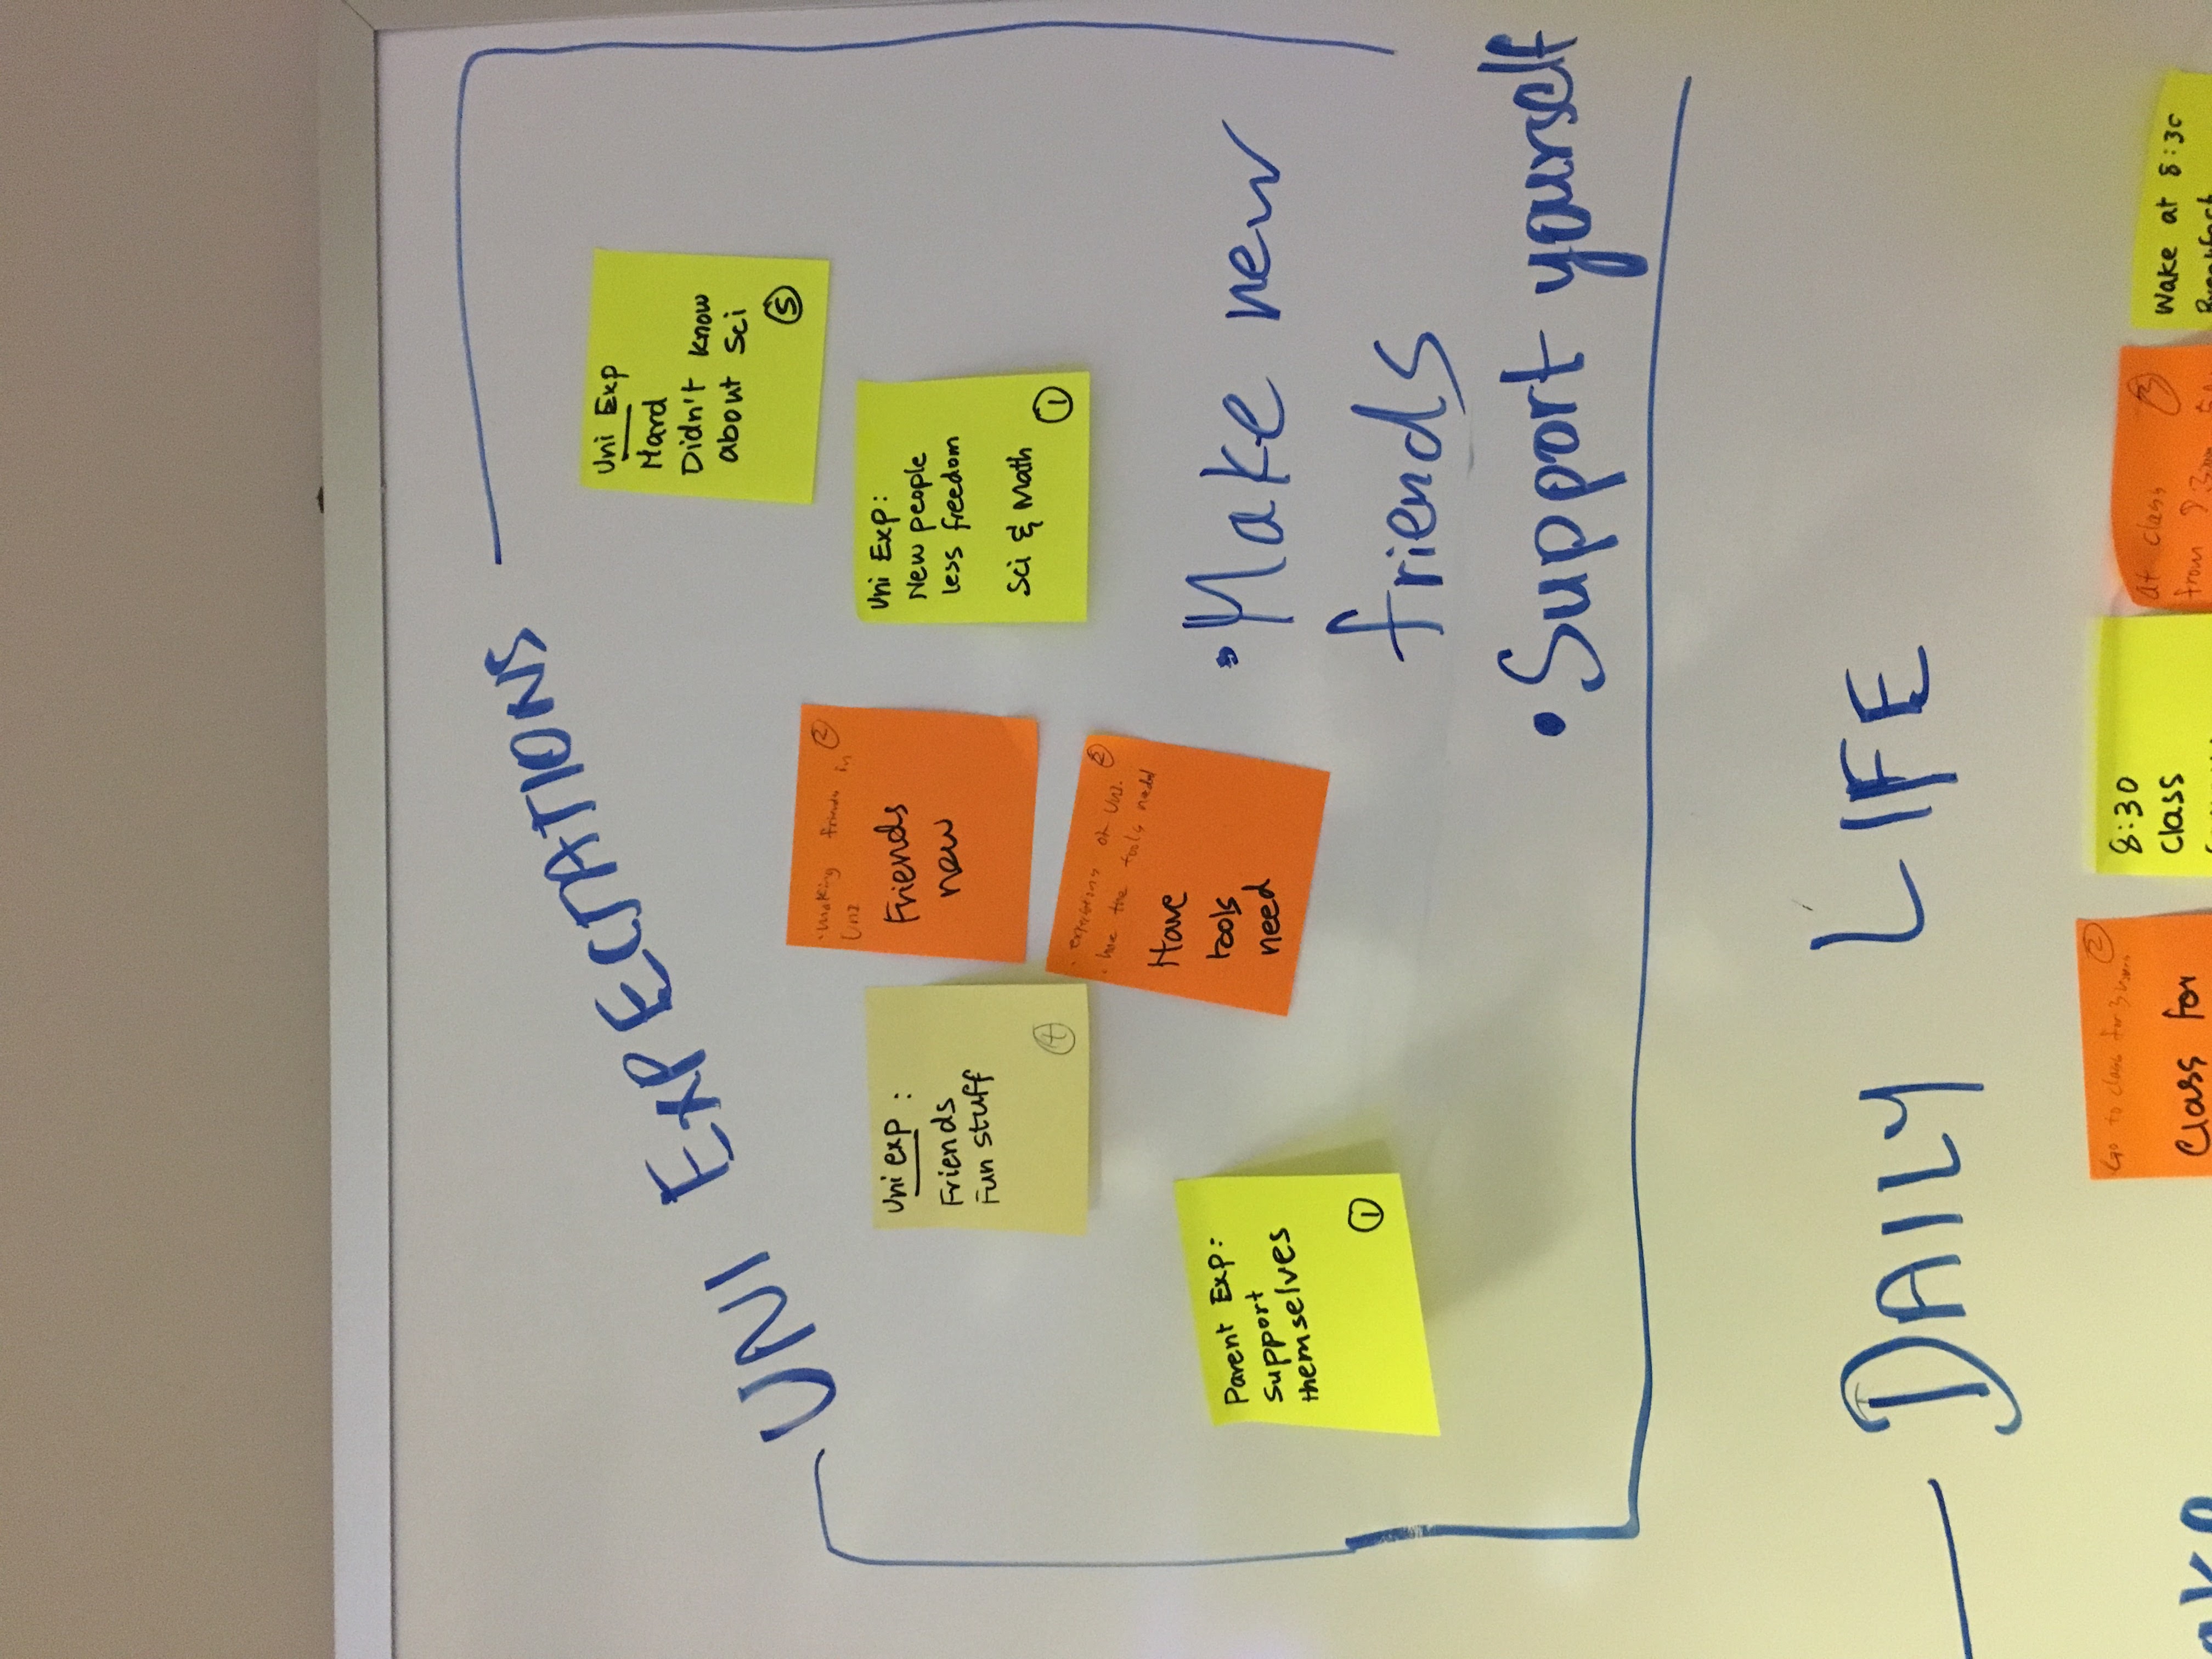 UNI EXPECTATIONS
Uni Exp
Hard
Didn't know
about Sci
5
making friends in
2
Uni
Friends
new
Uni exp :
Friends
Fun stuff
4
Uni Exp:
New people
less freedom
Sci & Math
1
of Uni.
2
the tools need
Have
tools
need
Parent Exp:
Support
themselves
1
• Make new
friends
• Support yourself
DAILY LIFE
Go to class for 3 hours
2
Class for
8:30
Class
at class
from
Wake at 8:30
Breakfast